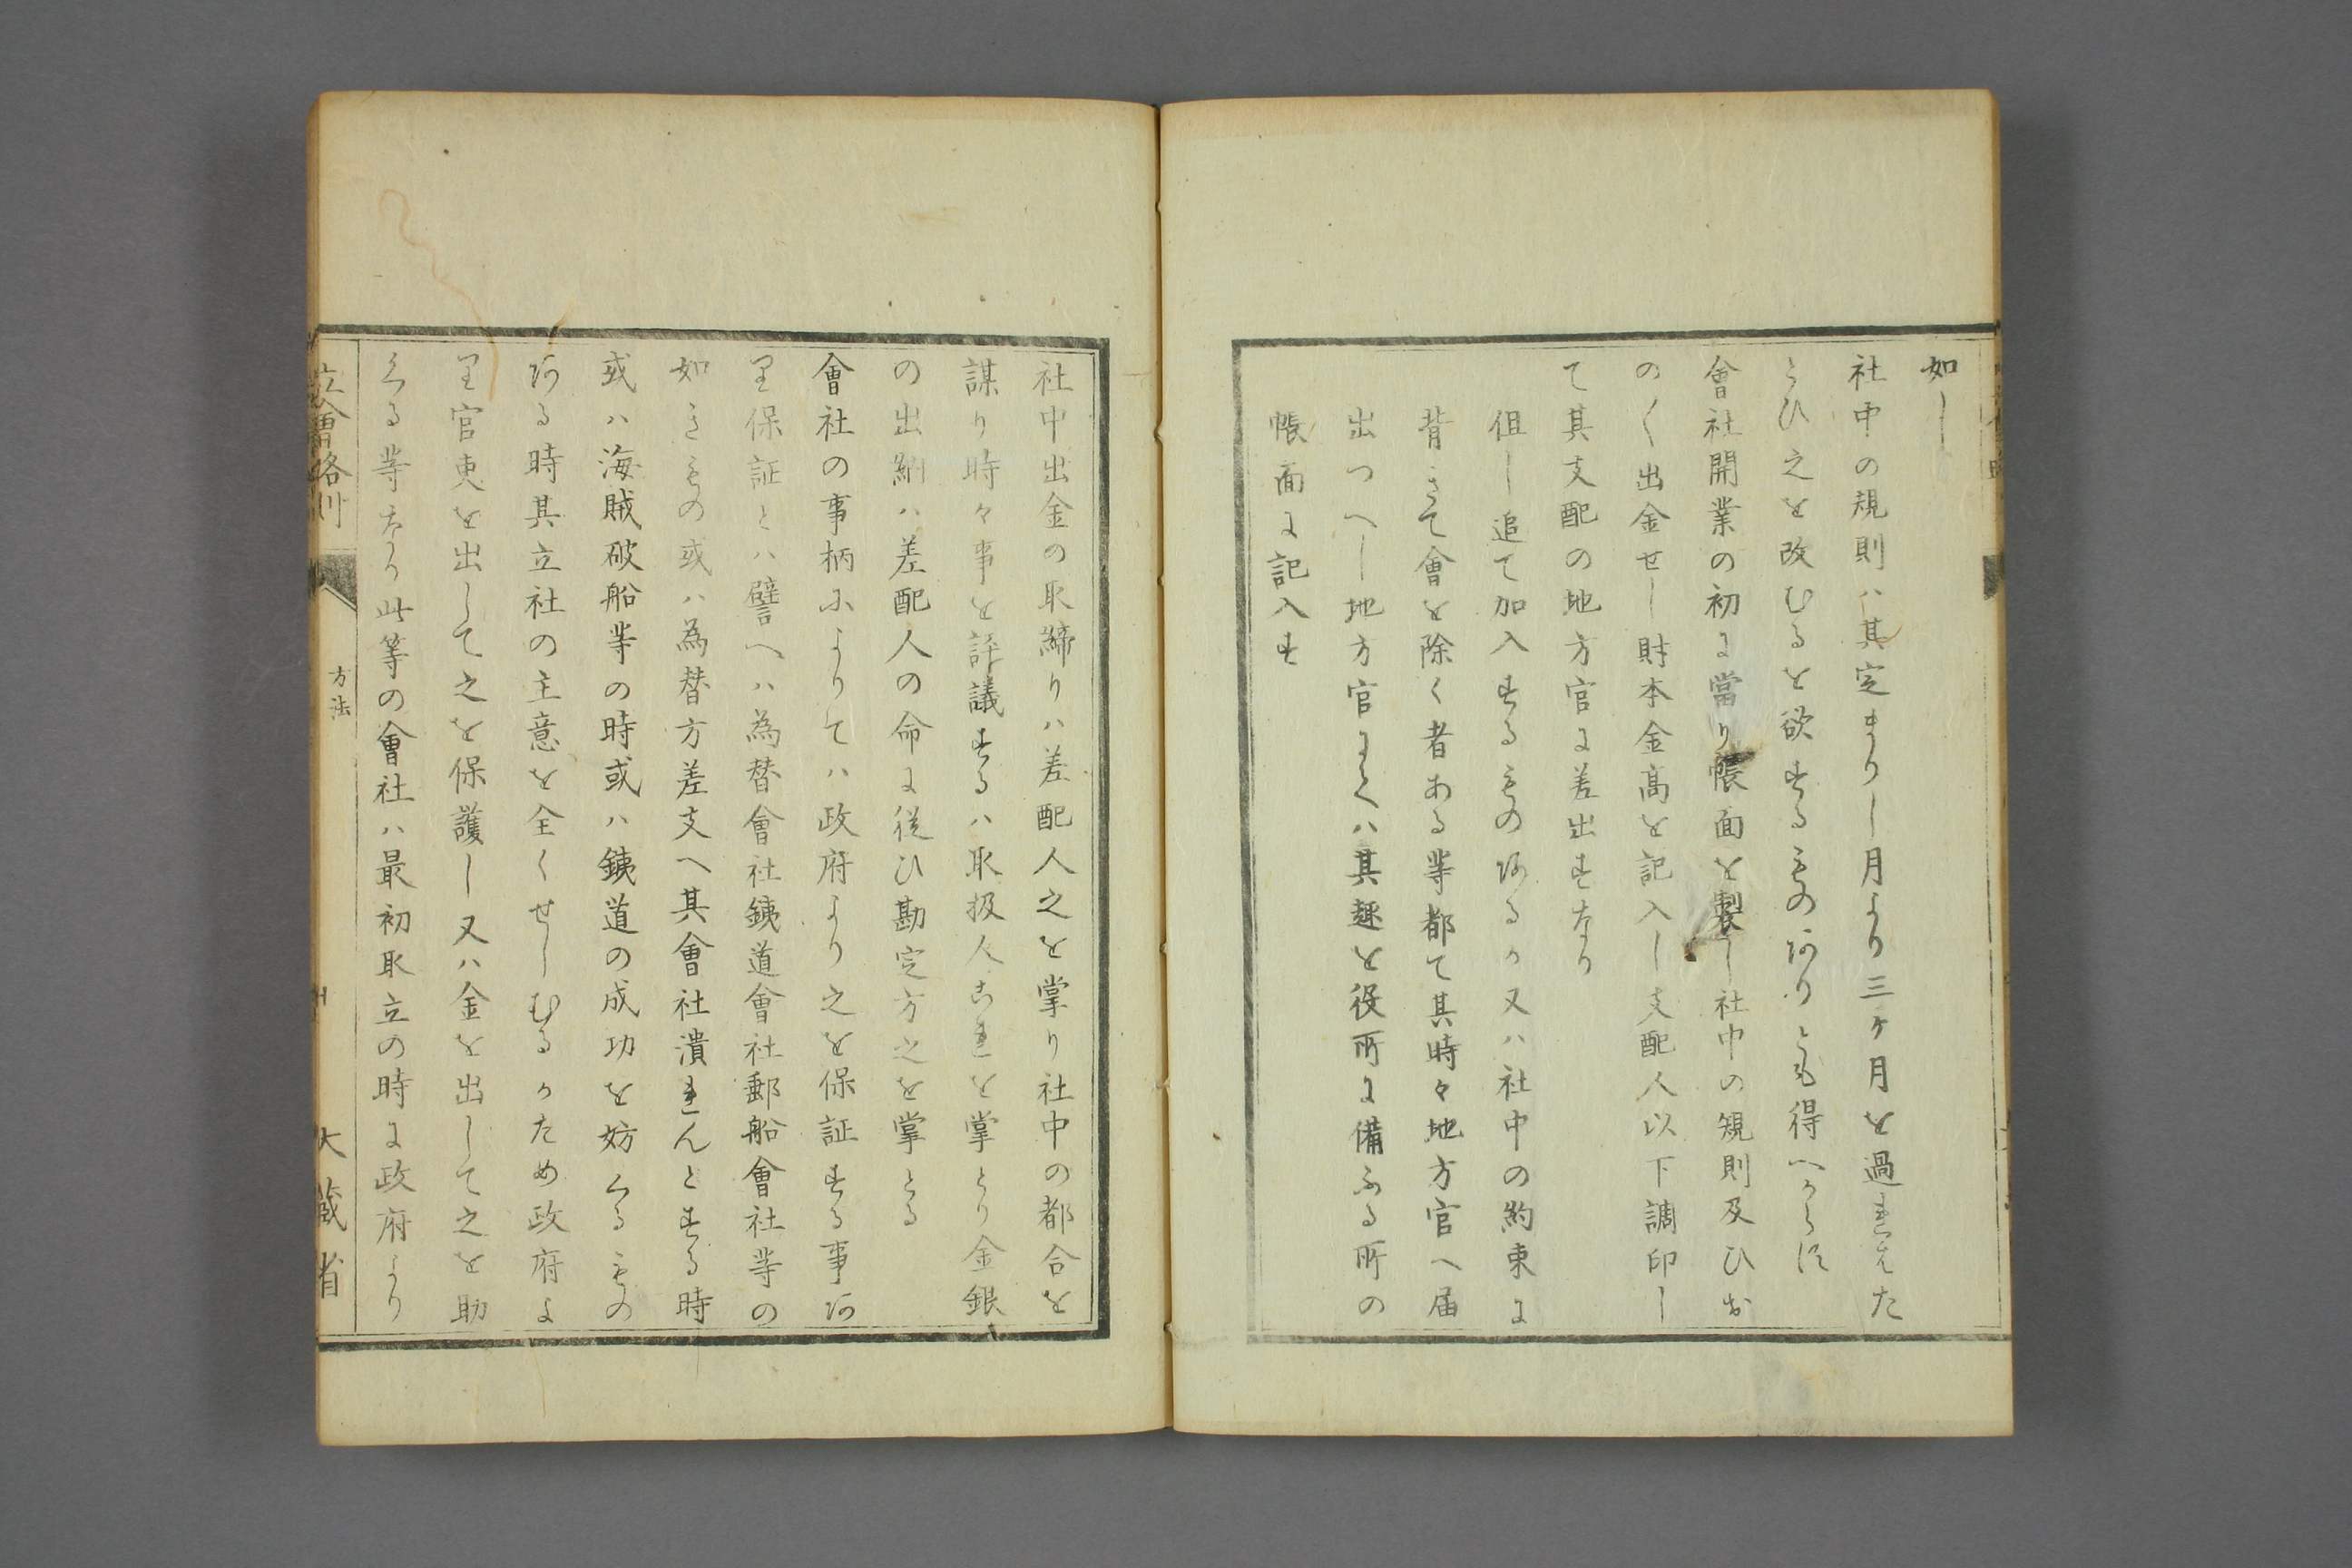 如し
社中の規則ハ其定まりし月より三ヶ月を過されハた
とひ之を改むるを欲するもの有りとも得へからす
會社開業の初に當り帳面を製し社中の規則及ひお
のく出金せし財本金高を記入し支配人以下調印し
て其支配の地方官に差出すなり
但し追て加入するもの有るか又ハ社中の約束に
背きて會を除く者ある等都て其時々地方官へ届
出つへし地方官にてハ其趣を役所に備ふる所の
帳面に記入す
社中出金の取締りハ差配人之を掌り社中の都合を
謀り時々事を評議するハ取扱人これを掌とり金銀
の出納ハ差配人の命に従ひ勘定方之を掌とる
會社の事柄によりてハ政府より之を保証する事有
り保証とハ譬へハ為替會社鉄道會社郵船會社等の
如きもの或ハ為替方差支へ其會社潰れんとする時
或ハ海賊破船等の時或ハ鉄道の成功を妨くるもの
有る時其立社の主意を全くせしむるかため政府よ
り官吏を出して之を保護し又ハ金を出して之を助
くる等なり此等の會社ハ最初取立の時に政府より
立會略則
方法
大蔵省